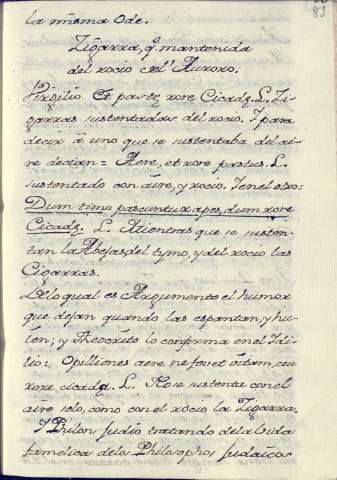 83
la misma Ode.
Zigarra, q̃. mantenida
del rocio del Aurora.
Virgilio. Et partẽ rore Cicadȩ. L. Zi-
garras sustentadas del rocio. Y para
decir â uno que se sustentaba del ai-
re decian = Aere, et rore pastus. L.
sustentado con aire, y rocio. Y en el otro:
Dum timo pascuntur apes, dum rore
Cicadȩ. L. Mientras que se susten-
tan la Abejas del tymo, y del rocio las
Cigarras.
De lo qual es Argumento el humor
que dejan quando las espantan, y hu-
ien; y Theocrito lo confirma en el Idi-
lio: Opilliones aere ne fovet vitam, ceu
rore cicada. L. No se sustenta con el
aire solo, como con el rócio la Zigarra.
Y Philon Judio tratando de la Vida
famelica de los Philosophos Judaicos